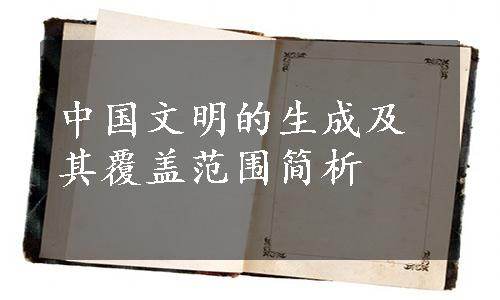 中国文明的生成及
其覆盖范围简析